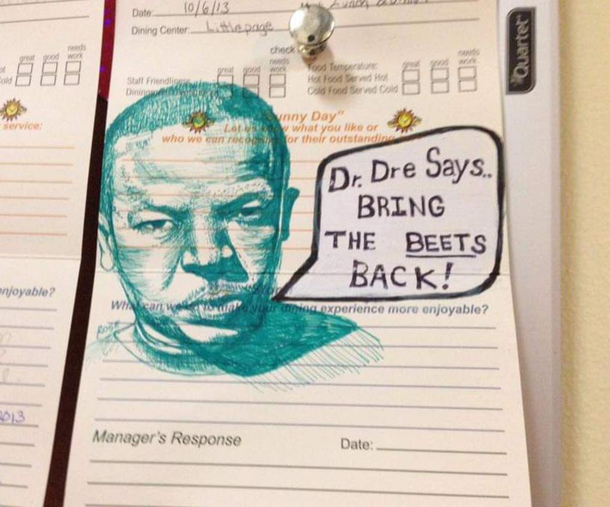 Date: 10/6/13
Dining Center: Littlepage
check
great good needs work
great good needs work
Staff Friendliness
Dining
Food Temperature:
Hot Food Served Hot
Cold Food Served Cold
great good needs work
"Quarter"
service:
Sunny Day"
Let us know what you like or
who we can recognize for their outstanding
Dr. Dre Says..
BRING
THE BEETS
BACK!
enjoyable?
What can we do to make your dining experience more enjoyable?
2013
Manager's Response Date: